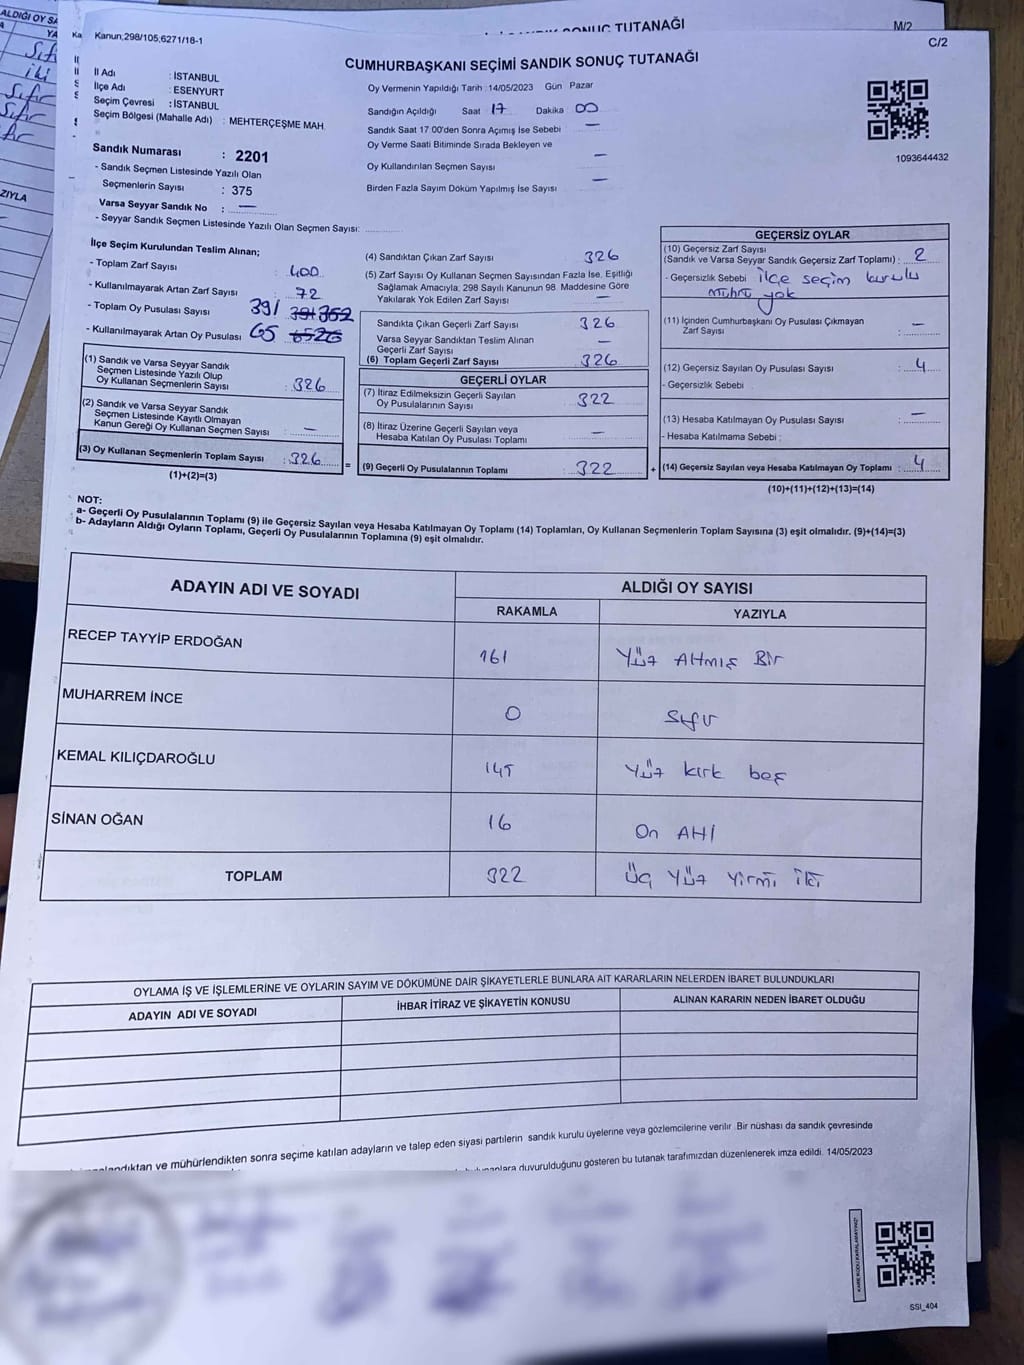 ALDIĞI OY SA
YA
Sıfı
iki
Sıfır
Sıfır
ZIYLA
SONUÇ TUTANAĞI
M/2
Kanun;298/105,6271/18-1
C/2
CUMHURBAŞKANI SEÇİMİ SANDIK SONUÇ TUTANAĞI
İl Adı : İSTANBUL
İlçe Adı : ESENYURT
Seçim Çevresi : İSTANBUL
Seçim Bölgesi (Mahalle Adı) : MEHTERÇEŞME MAH.
Oy Vermenin Yapıldığı Tarih :14/05/2023 Gün Pazar
Sandığın Açıldığı Saat 17 Dakika 00
Sandık Saat 17.00'den Sonra Açımış İse Sebebi —
Oy Verme Saati Bitiminde Sırada Bekleyen ve
Oy Kullandırılan Seçmen Sayısı —
Birden Fazla Sayım Döküm Yapılmış İse Sayısı —
1093644432
Sandık Numarası : 2201
- Sandık Seçmen Listesinde Yazılı Olan
Seçmenlerin Sayısı : 375
Varsa Seyyar Sandık No : —
- Seyyar Sandık Seçmen Listesinde Yazılı Olan Seçmen Sayısı:
İlçe Seçim Kurulundan Teslim Alınan;
- Toplam Zarf Sayısı : 400
- Kullanılmayarak Artan Zarf Sayısı : 72
- Toplam Oy Pusulası Sayısı 391 391 352
- Kullanılmayarak Artan Oy Pusulası 65 6526
(1) Sandık ve Varsa Seyyar Sandık
Seçmen Listesinde Yazılı Olup
Oy Kullanan Seçmenlerin Sayısı : 326
(2) Sandık ve Varsa Seyyar Sandık
Seçmen Listesinde Kayıtlı Olmayan
Kanun Gereği Oy Kullanan Seçmen Sayısı : —
(3) Oy Kullanan Seçmenlerin Toplam Sayısı : 326
(1)+(2)=(3)
(4) Sandıktan Çıkan Zarf Sayısı 326
(5) Zarf Sayısı Oy Kullanan Seçmen Sayısından Fazla İse, Eşitliği
Sağlamak Amacıyla; 298 Sayılı Kanunun 98. Maddesine Göre
Yakılarak Yok Edilen Zarf Sayısı —
Sandıkta Çıkan Geçerli Zarf Sayısı 326
Varsa Seyyar Sandıktan Teslim Alınan
Geçerli Zarf Sayısı —
(6) Toplam Geçerli Zarf Sayısı 326
GEÇERLİ OYLAR
(7) İtiraz Edilmeksizin Geçerli Sayılan
Oy Pusulalarının Sayısı 322
(8) İtiraz Üzerine Geçerli Sayılan veya
Hesaba Katılan Oy Pusulası Toplamı —
= (9) Geçerli Oy Pusulalarının Toplamı 322 +
GEÇERSİZ OYLAR
(10) Geçersiz Zarf Sayısı
(Sandık ve Varsa Seyyar Sandık Geçersiz Zarf Toplamı) : 2
- Geçersizlik Sebebi : ilçe seçim kurulu
mührü yok
(11) İçinden Cumhurbaşkanı Oy Pusulası Çıkmayan
Zarf Sayısı : —
(12) Geçersiz Sayılan Oy Pusulası Sayısı : 4
- Geçersizlik Sebebi :
(13) Hesaba Katılmayan Oy Pusulası Sayısı : —
- Hesaba Katılmama Sebebi :
(14) Geçersiz Sayılan veya Hesaba Katılmayan Oy Toplamı : 4
(10)+(11)+(12)+(13)=(14)
NOT:
a- Geçerli Oy Pusulalarının Toplamı (9) ile Geçersiz Sayılan veya Hesaba Katılmayan Oy Toplamı (14) Toplamları, Oy Kullanan Seçmenlerin Toplam Sayısına (3) eşit olmalıdır. (9)+(14)=(3)
b- Adayların Aldığı Oyların Toplamı, Geçerli Oy Pusulalarının Toplamına (9) eşit olmalıdır.
ADAYIN ADI VE SOYADI
ALDIĞI OY SAYISI
RAKAMLA YAZIYLA
RECEP TAYYİP ERDOĞAN 161 Yüz Altmış Bir
MUHARREM İNCE 0 Sıfır
KEMAL KILIÇDAROĞLU 145 Yüz kırk beş
SİNAN OĞAN 16 On Altı
TOPLAM 322 Üç Yüz Yirmi İki
OYLAMA İŞ VE İŞLEMLERİNE VE OYLARIN SAYIM VE DÖKÜMÜNE DAİR ŞİKAYETLERLE BUNLARA AİT KARARLARIN NELERDEN İBARET BULUNDUKLARI
ADAYIN ADI VE SOYADI İHBAR İTİRAZ VE ŞİKAYETİN KONUSU ALINAN KARARIN NEDEN İBARET OLDUĞU
ve mühürlendikten sonra seçime katılan adayların ve talep eden siyasi partilerin sandık kurulu üyelerine veya gözlemcilerine verilir. Bir nüshası da sandık çevresinde
duyurulduğunu gösteren bu tutanak tarafımızdan düzenlenerek imza edildi. 14/05/2023
KARE KODU KARALAMAYINIZ!
SSI_404